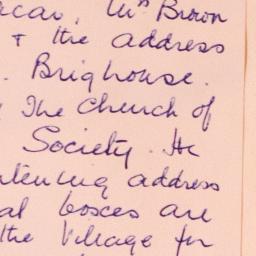 Mrs Brown
& the address
. Brighouse.
The Church of
Society. He
address
boxes are
the Village for